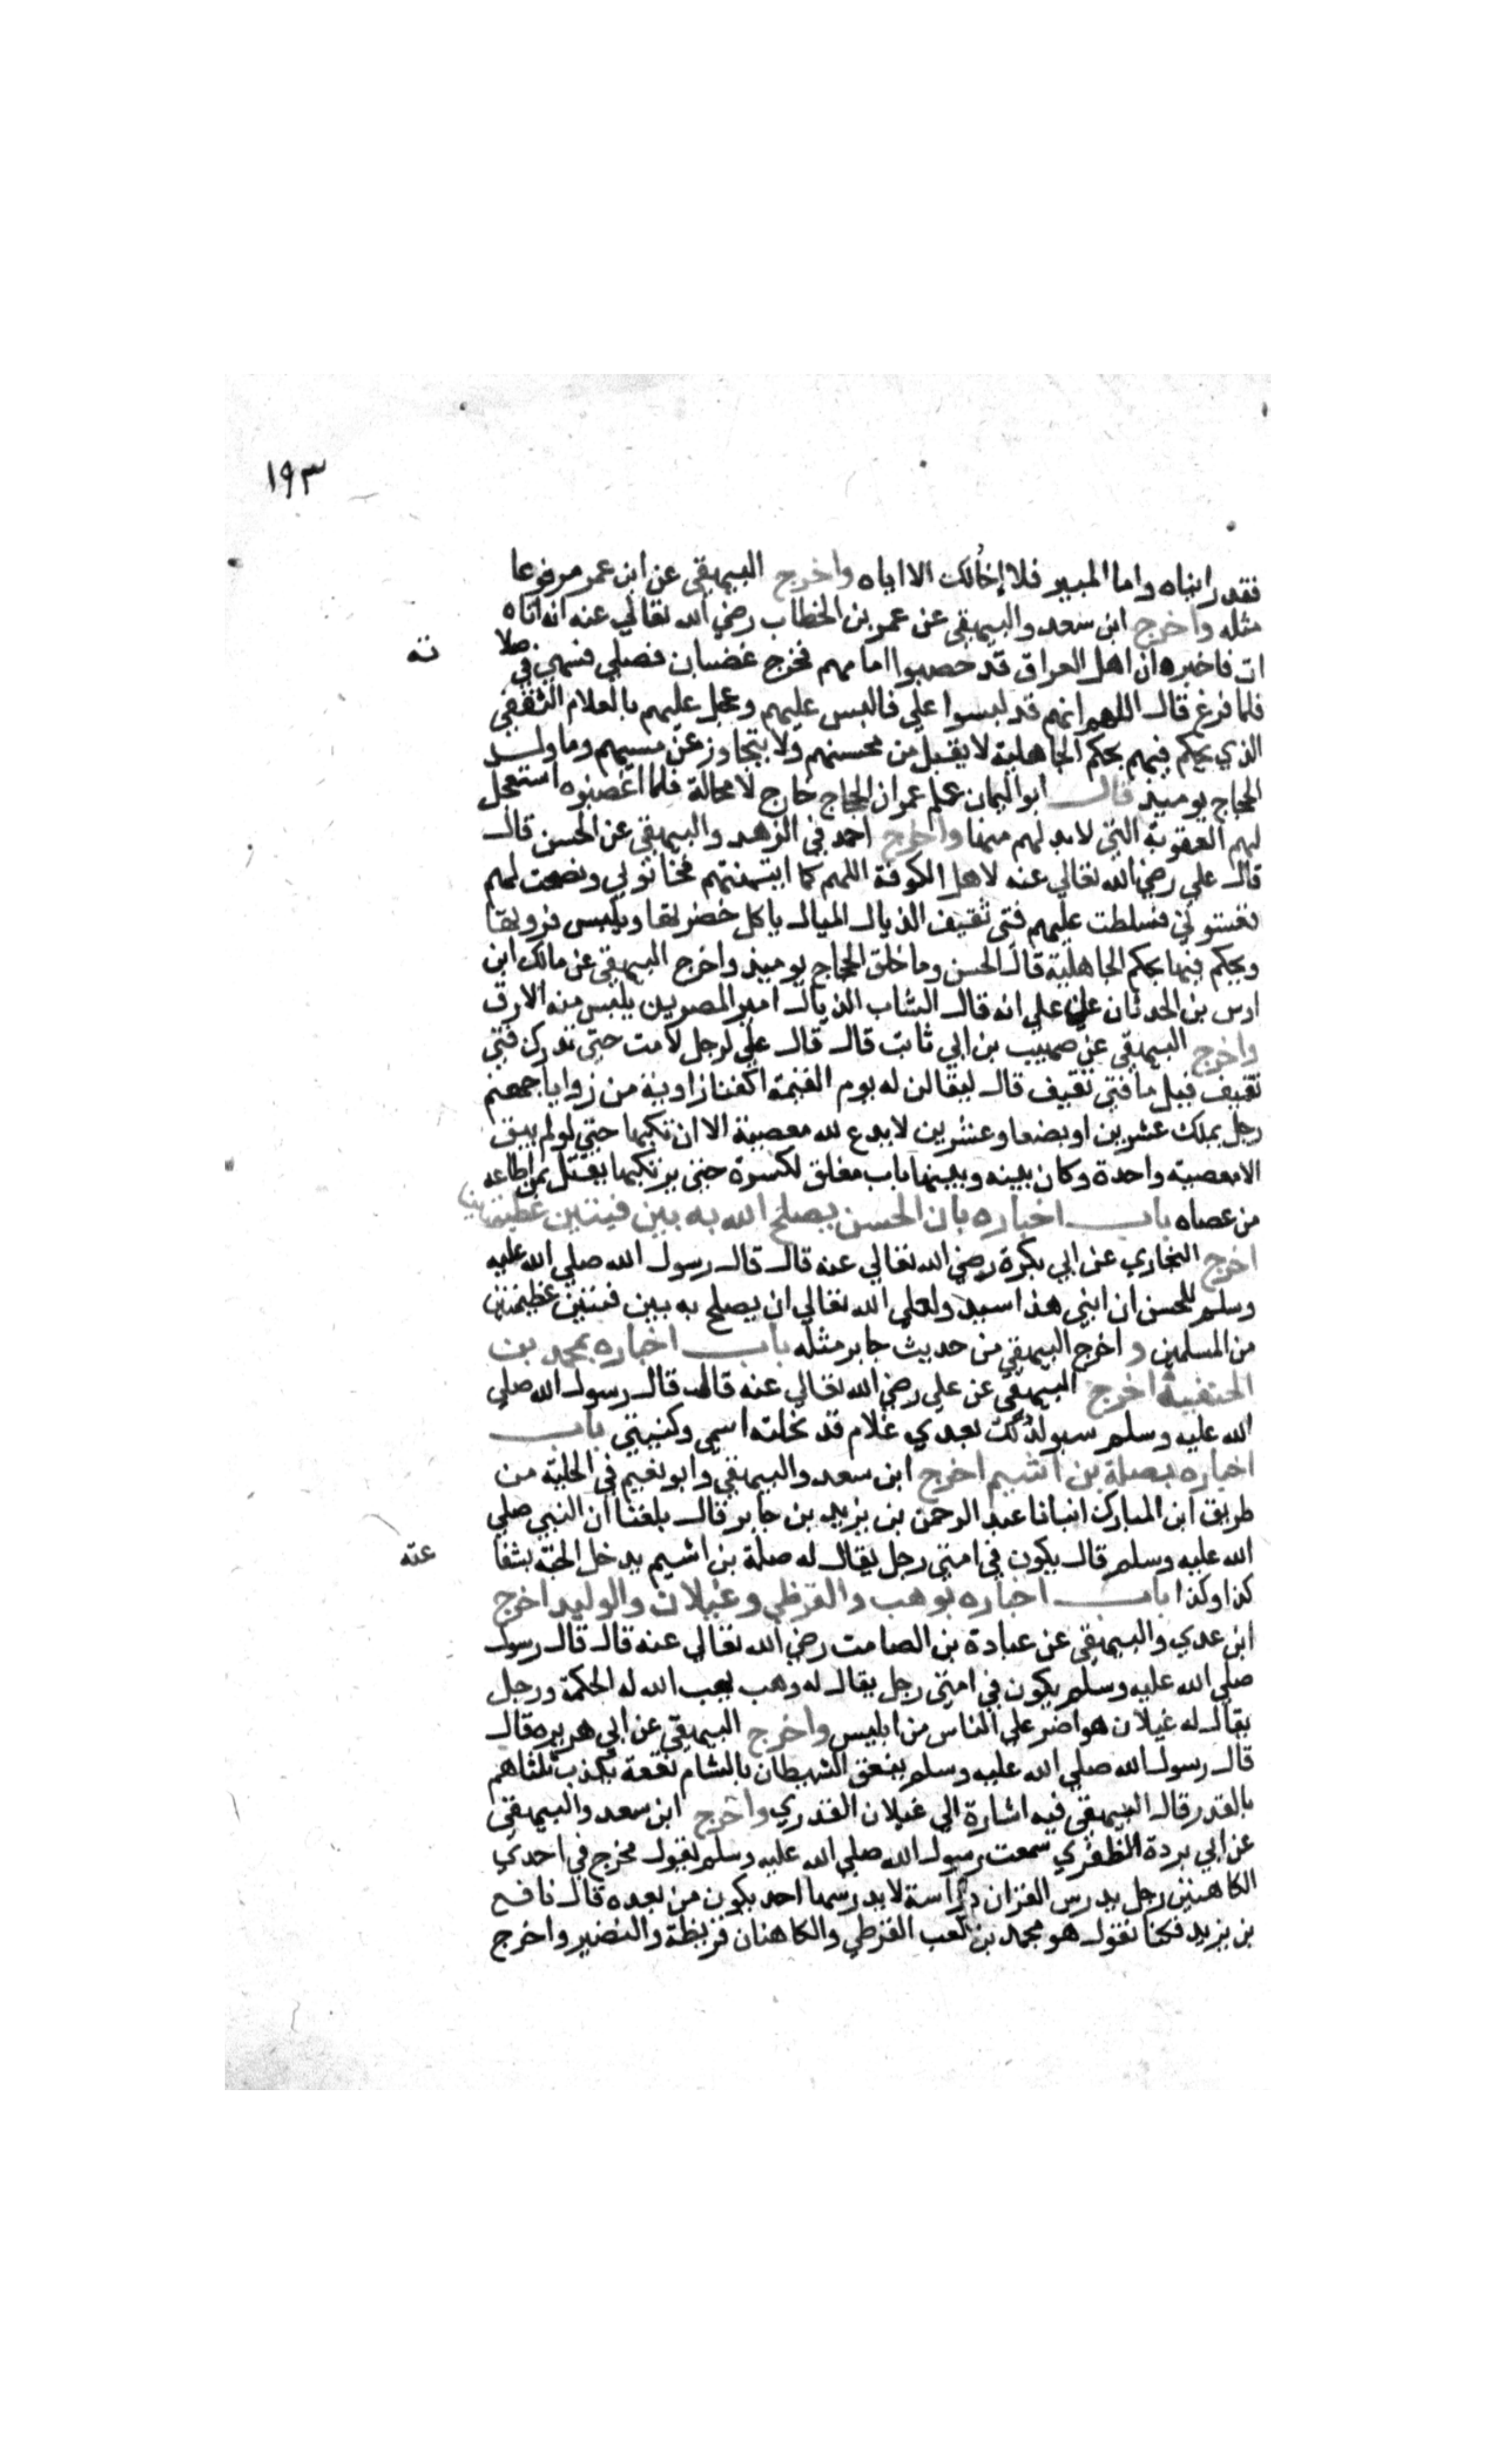 ١٩٣
فقد رايناه واما المبير فلا إخالك الا اياه واخرج البيهقي عن ابن عمر مرفوعا
مثله واخرج ابن سعد والبيهقي عن عمر بن الخطاب رضي الله تعالي عنه انه اتاه
ات فاخبره ان اهل العراق قد حصبوا امامهم فخرج غضبان فصلي فسهي في صلا ته
فلما فرغ قال اللهم انهم قد لبسوا علي فالبس عليهم وعجل عليهم بالغلام الثقفي
الذي يحكم فيهم بحكم الجاهلية لا يقبل من محسنهم ولا يتجاوز عن مسيهم وما ولد
الحجاج يوميذ قال ابو اليمان علم عمر ان الحجاج خارج لا محالة فلما اغضبوه استعجل
لهم العقوبة التي لا بد لهم منها واخرج احمد في الزهد والبيهقي عن الحسن قال
قال علي رضي الله تعالي عنه لاهل الكوفة اللهم كما ايتمنتهم فخانوني ونصحت لهم
فغشوني فسلطت عليهم فتي ثقيف الذيال الميال ياكل خضرتها ويلبس فروتها
ويحكم فيها بحكم الجاهلية قال الحسن وما خلق الحجاج يوميذ واخرج البيهقي عن مالك ابن
اوس بن الحدثان عن علي انه قال الشاب الذيال امير المصرين يلبس منه الارق
واخرج البيهقي عن صهيب بن ابي ثابت قال قال علي لرجل لا مت حتي تدركن فتي
ثقيف قيل ما فتي ثقيف قال ليقالن له يوم القيمة اكفنا زاوية من زوايا جهنم
رجل يملك عشرين او بضعا وعشرين لا يدع لله معصية الا ان تكبها حتي لو لم يبق
الا معصية واحدة وكان بينه وبينها باب مغلق لكسره حتي يرتكبها يقتل بمن اطاعه
من عصاه باب اخباره بان الحسن يصلح الله به بين فيتين عظيمتين
اخرج البخاري عن ابي بكرة رضي الله تعالي عنه قال قال رسول الله صلي الله عليه
وسلم للحسن ان ابني هذا سيد ولعل الله تعالي ان يصلح به بين فيتين عظيمتين
من المسلمين واخرج البيهقي من حديث جابر مثله باب اخباره بمحمد بن
الحنفية اخرج البيهقي عن علي رضي الله تعالي عنه قال قال رسول الله صلي
الله عليه وسلم سيولد لك بعدي غلام قد نحلته اسمي وكنيتي باب
اخباره بصلة بن اشيم اخرج ابن سعد والبيهقي وابو نعيم في الحلية من
طريق ابن المبارك انبانا عبد الرحمن بن يزيد بن جابر قال بلغنا ان النبي صلي
الله عليه وسلم قال يكون في امتي رجل يقال له صلة بن اشيم يدخل الجنة بشفا عته
كذا وكذا باب اخباره بوهب والقرظي وغيلان والوليد اخرج
ابن عدي والبيهقي عن عبادة بن الصامت رضي الله تعالي عنه قال قال رسول
صلي الله عليه وسلم يكون في امتي رجل يقال له وهب يهب الله له الحكمة ورجل
يقال له غيلان هو اضر علي الناس من ابليس واخرج البيهقي عن ابي هريره قال
قال رسول الله صلي الله عليه وسلم ينعق الشيطان بالشام نعقة يكذب ثلثاهم
بالقدر قال البيهقي فيه اشارة الي غيلان القدري واخرج ابن سعد والبيهقي
عن ابي بردة الظفري سمعت رسول الله صلي الله عليه وسلم يقول يخرج في احدي
الكاهنين رجل يدرس القران دراسة لا يدرسها احد يكون من بعده قال نافع
بن يزيد فكنا نقول هو محمد بن كعب القرظي والكاهنان قريظة والنضير واخرج